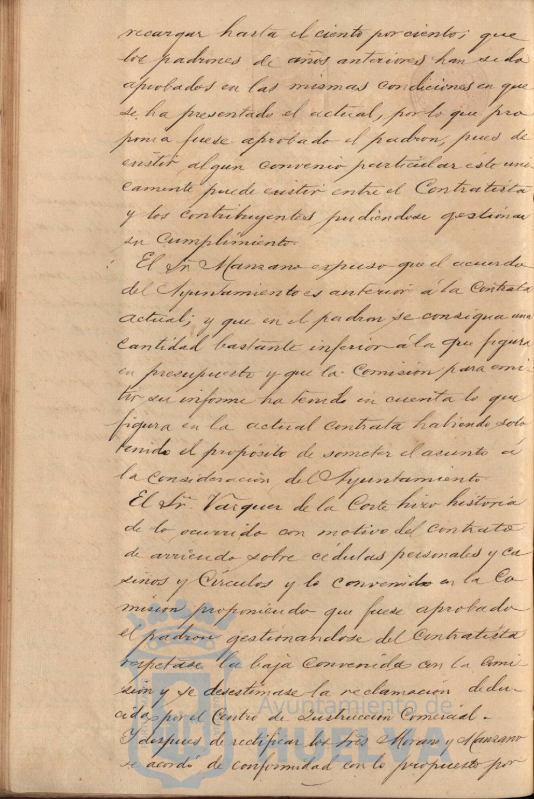 recargar hasta el ciento por ciento; que
los padrones de años anteriores han sido
aprobados en las mismas condiciones en que
se ha presentado el actual, por lo que pro
ponia fuese aprobado el padron, pues de
existir algun convenio particular este uni
camente puede existir entre el Contratista
y los contribuyentes pudiendose gestionar
su cumplimiento.
El Sr. Manzano expuso que el acuerdo
del Ayuntamiento es anterior á la Contrata
actual; y que en el padron se consigna una
cantidad bastante inferior á la que figura
en presupuesto y que la Comision para emi
tir su informe ha tenido en cuenta lo que
figura en la actual contrata habiendo solo
tenido el propósito de someter el asunto á
la consideración del Ayuntamiento
El Sr. Vazquez de la Corte hizo historia
de lo ocurrido con motivo del contrato
de arriendo sobre cédulas personales y ca
sinos y Círculos y lo convenido en la Co
mision proponiendo que fuese aprobado
el padron gestionandose del Contratista
respetase la baja convenida con la Comi
sion y se desestimase la reclamación dedu-
cida por el Centro de Instrucción Comercial.
Y despues de rectificar los Sres Moran y Manzano
se acordó de conformidad con lo propuesto por
Ayuntamiento de
HUELVA